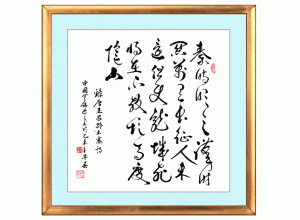 秦時明月漢時
關萬里長征人未
還但使龍城飛
將在不教胡馬度
陰山
錄唐王昌齡出塞詩
中國